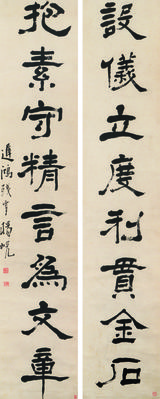 設儀立度利貫金石
抱素守精言爲文章
遲鴻殘叟楊峴